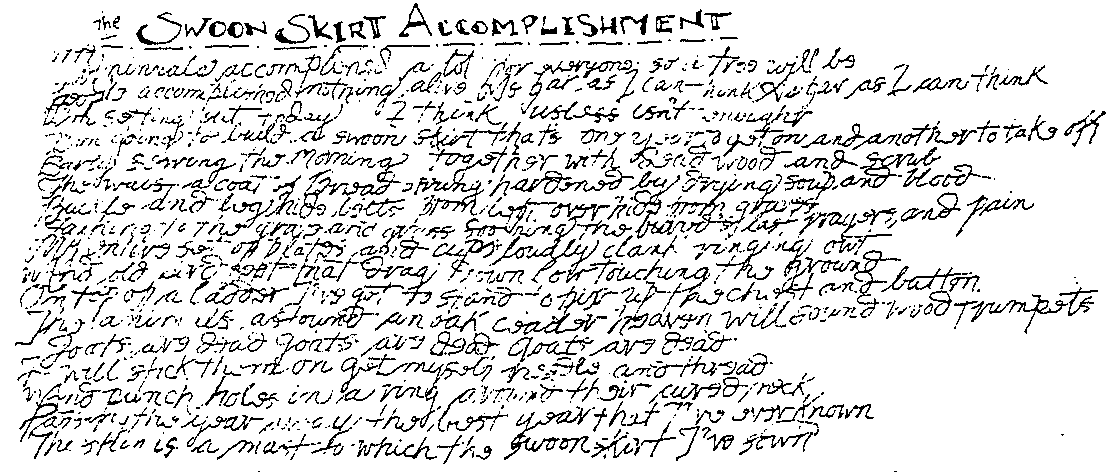 the SWOON SKIRT ACCOMPLISHMENT
accomplished a lot for everyone so a tree will be
People accomplished nothing alive bye far as I can think As far as I can think
With setting out today I think usless isn't enought
I'm going to build a swoon skirt thats one year to get on and another to take off
Early sewing the morning together with dead wood and scrub
The waist a coat of bread string hardened by drying soup and blood
Buckle and leg hide belts from left over hide from
to the grap and grass soothing the burnd prayers and pain
My entire set of plates and cups loudly clank ringing out
old that drag down low touching the ground
On top of a ladder I've got to stand to the chest and button
The around an oak ceader heaven will sound wood trumpets
Goats are dead goats are dead Goats are dead
I will stick them on get myself neetle and thread
And punch holes in a ring around their cured neck
Passing the year away the best year that I've ever known
The skin is a mast to which the swoon skirt I've sown